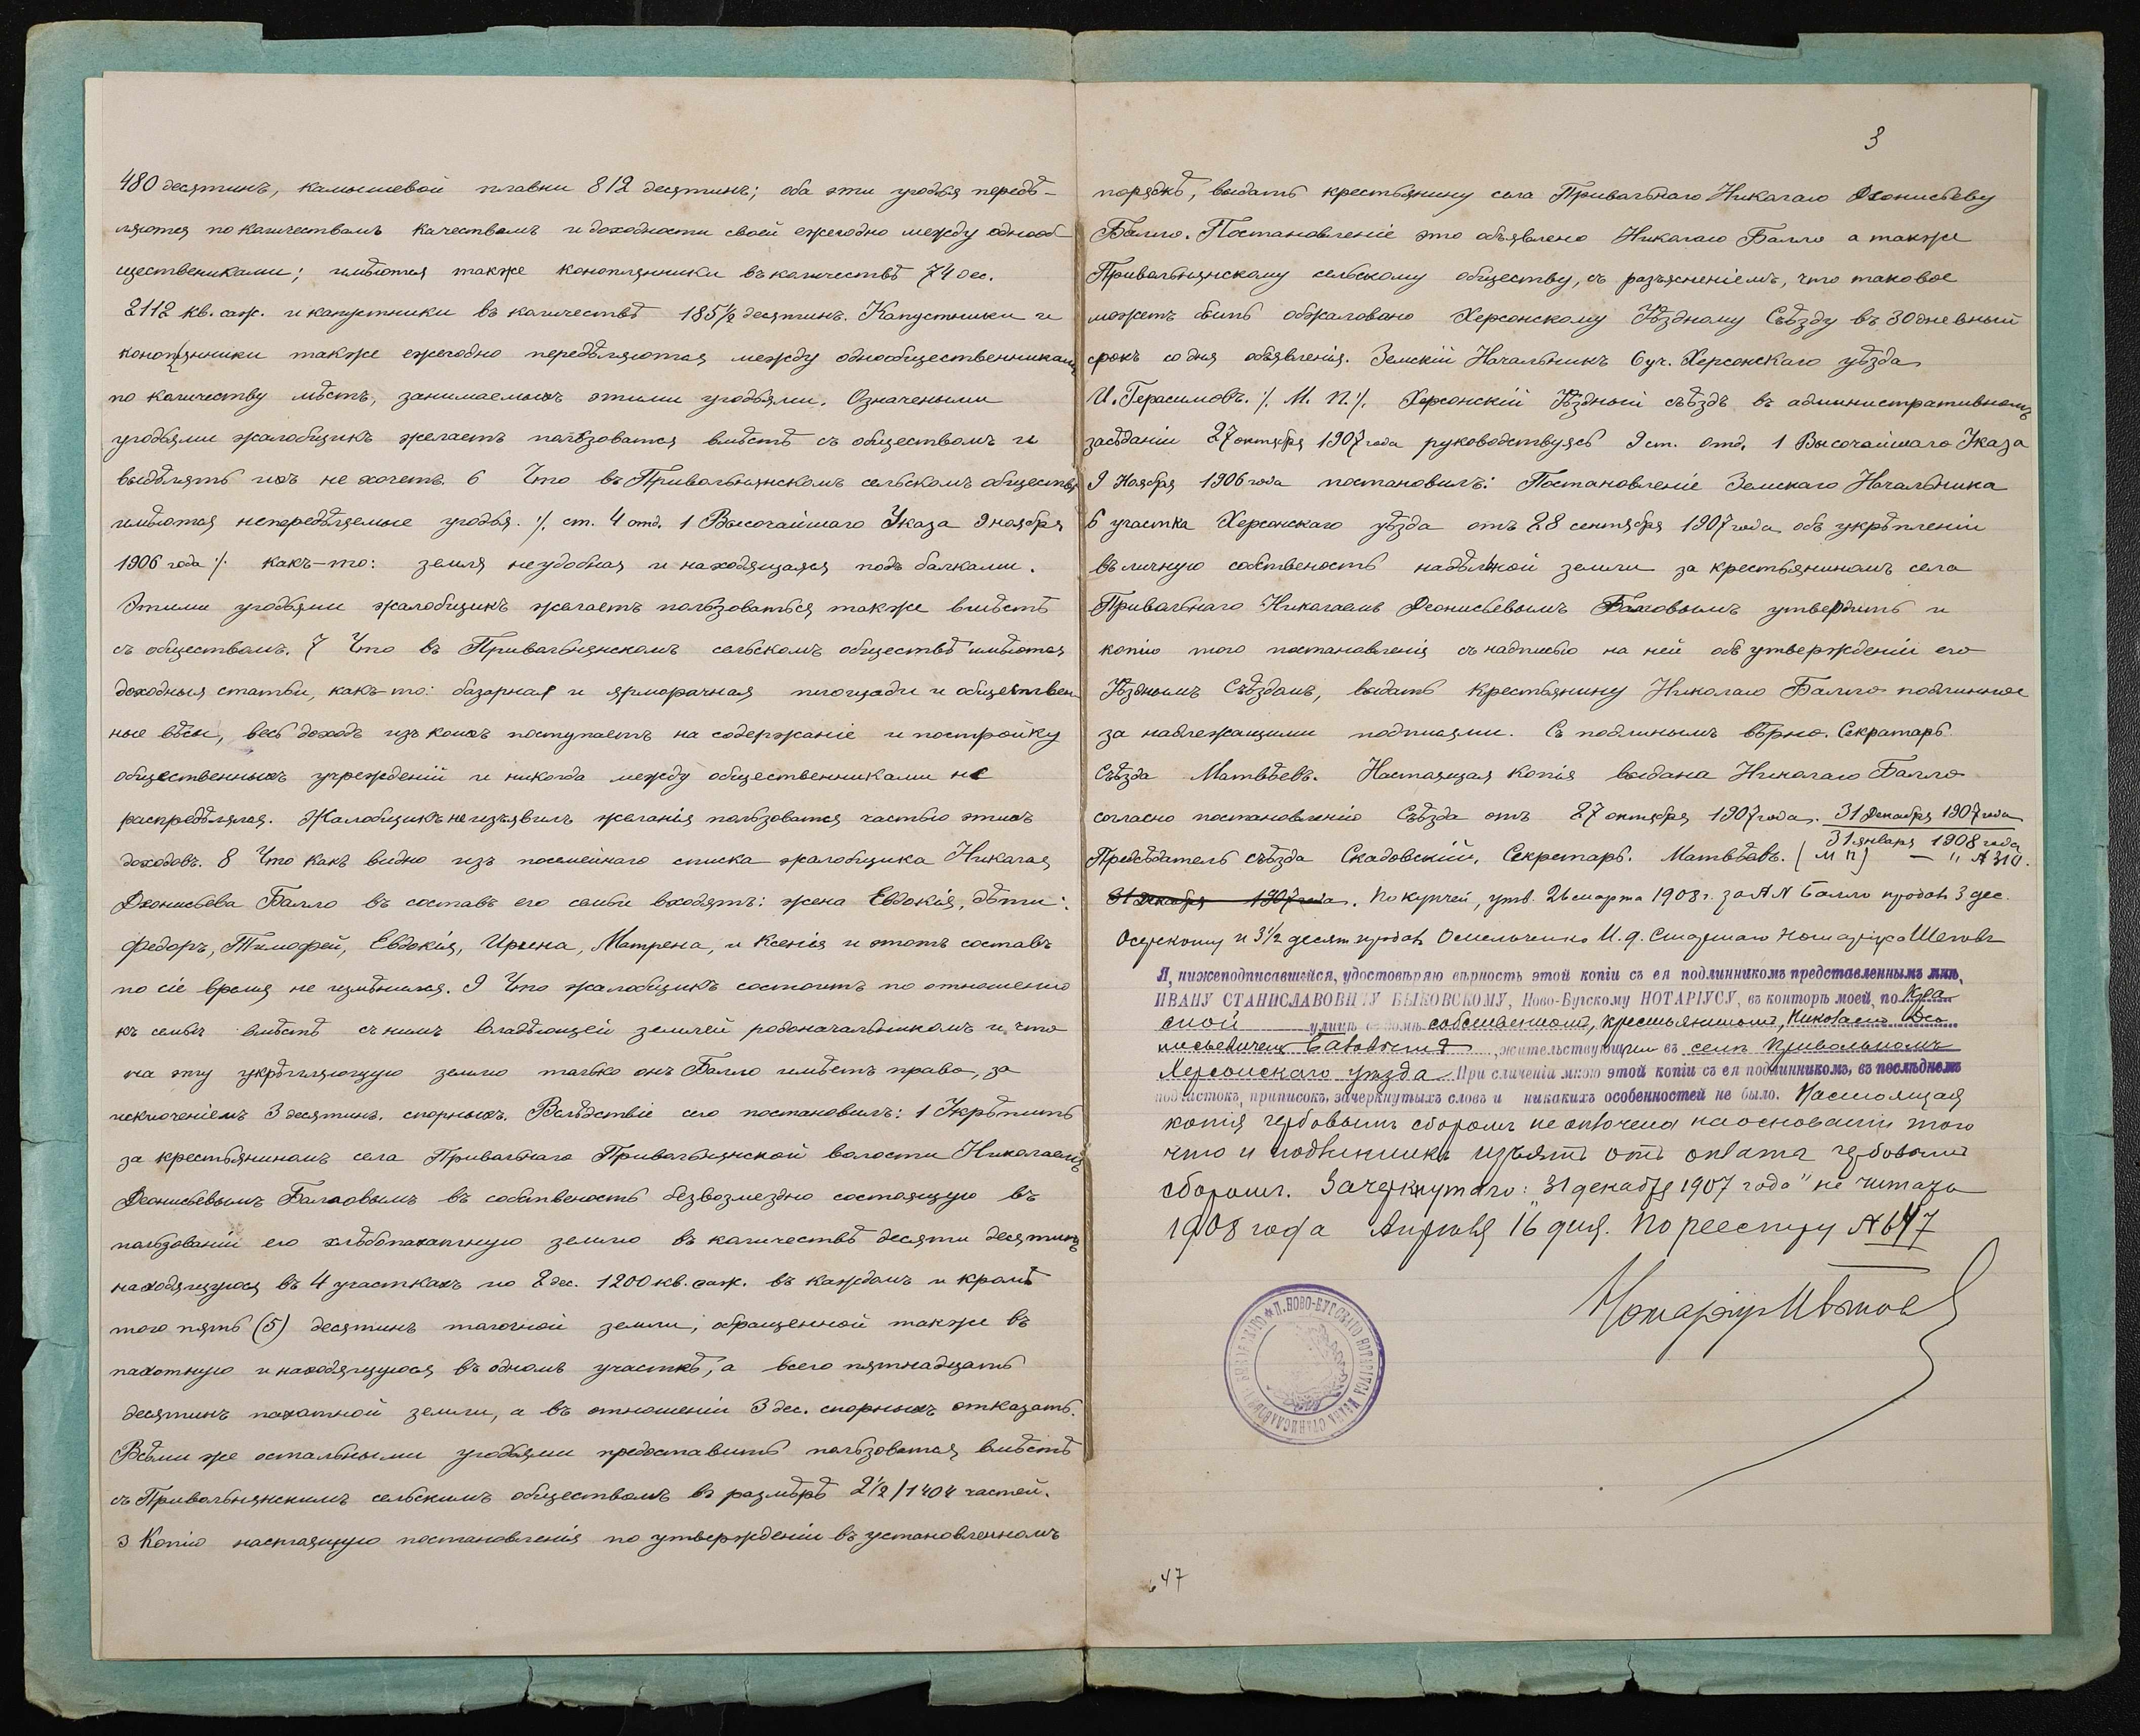 480 десятинъ, камышевой плавни 812 десятинъ; оба эти угодья передѣ-
ляются по количествамъ качествамъ и доходности своей ежегодно между однооб
щественниками; имѣются также конопляники въ количествѣ 74 дес.
2112 кв. саж. и капустники въ количествѣ 185½ десятинъ. Капустники и
конопляники также ежегодно передѣляются между однообщественниками
по количеству мѣстъ, занимаемыхъ этими угодьями. Означеными
угодьями жалобщикъ желаетъ пользоватся вмѣстѣ съ обществомъ и
выдѣлять ихъ не хочетъ. 6 Что въ Привольнянскомъ сельскомъ обществѣ
имѣются непередѣляемые угодья ·/. ст. 4 отд. 1 Высочайшаго Указа 9 ноября
1906 года ·/. какъ-то: земля неудобная и находящаяся подъ балками.
Этими угодьями жалобщикъ желаетъ пользоваться также вмѣстѣ
съ обществомъ. 7 Что въ Привольнянскомъ сельскомъ обществѣ имѣются
доходныя статьи, какъ-то: базарная и ярморачная площади и обществен
ные вѣсы, весь доходъ изъ коихъ поступаетъ на содержаніе и постройку
общественныхъ учрежденій и никогда между общественниками не
распредѣлялся. Жалобщикъ не изъявилъ желанія пользоватся частью этихъ
доходовъ. 8 Что какъ видно изъ посемейнаго списка жалобщика Николая
Діонисьева Балло въ составъ его семьи входятъ: жена Евдокія, дѣти:
Федоръ, Тимофей, Евдокія, Ирина, Матрена, и Ксенія и этотъ составъ
по сіе время не измѣнился. 9 Что жалобщикъ состоитъ по отношенію
къ семьѣ вмѣстѣ съ нимъ владѣющей землей родоначальникомъ и что
на эту укрѣпляющую землю только онъ Балло имѣетъ право, за
исключеніемъ 3 десятинъ, спорныхъ. Вслѣдствіе сего постановилъ: 1 Укрѣпить
за крестьяниномъ села Привольнаго Привольнянской волости Николаемъ
Діонисьевымъ Балловымъ въ собственость безвозмездно состоящую въ
пользованіи его хлѣбопахатную землю въ количествѣ десяти десятинъ
находящуюся въ 4 участкахъ по 2 дес. 1200 кв. саж. въ каждомъ и кромѣ
того пять (5) десятинъ толочной земли, обращенной также въ
пахотную и находящуюся въ одномъ участкѣ, а всего пятнадцать
десятинъ пахотной земли, а въ отношеніи 3 дес. спорныхъ отказать.
Всѣми же остальными угодьями предоставить пользоватся вмѣстѣ
съ Привольнянскимъ сельскимъ обществомъ въ размѣрѣ 2½/1404 частей.
3 Копію настоящую постановленія по утвержденіи въ установленномъ
3
порядкѣ, выдать крестьянину села Привольнаго Николаю Діонисьеву
Балло. Постановленіе это объявлено Николаю Балло а также
Привольнянскому сельскому обществу, съ разъясненіемъ, что таковое
можетъ быть обжаловано Херсонскому Уѣздному Съѣзду въ 30 дневный
срокъ со дня объявленія. Земскій Начальникъ 6 уч. Херсонскаго уѣзда
И. Герасимовъ. ·/. М. П. ·/. Херсонскій Уѣздный съѣздъ въ административномъ
засѣданіи 27 октября 1907 года руководствуясь 9 ст. отд. 1 Высочайшаго Указа
9 Ноября 1906 года постановилъ: Постановленіе Земскаго Начальника
6 участка Херсонскаго уѣзда отъ 28 сентября 1907 года объ укрѣпленіи
въ личную собственость надѣльной земли за крестьяниномъ села
Привольнаго Николаемъ Діонисьевымъ Балловымъ утвердить и
копію того постановленія съ надписью на ней объ утвержденіи его
Уѣзднымъ Съѣздомъ, выдать крестьянину Николаю Балло подлинное
за надлежащими подписями. Съ подлинымъ вѣрно. Секратарь
Съѣзда Матвѣевъ. Настоящая копія выдана Николаю Балло
согласно постановленію Съѣзда отъ 27 октября 1907 года. 31 Декабря 1907 года
31 января 1908 года
Предсѣдатель съѣзда Скадовскій, Секретарь. Матвѣевъ. (М П) — " № 310.
31 Декабря 1907 года. По купчей, утв. 26 марта 1908 г. за № Балло продалъ 3 дес.
и 3½ десят продалъ Омельченко И. д. Старшаго Нотаріуса
Я, нижеподписавшійся, удостовѣряю вѣрность этой копіи съ ея подлинникомъ представленнымъ мнѣ,
ИВАНУ СТАНИСЛАВОВИЧУ БЫКОВСКОМУ, Ново-Бугскому НОТАРІУСУ, въ конторѣ моей, по Кра
сной улицѣ въ домѣ собственномъ, крестьяниномъ, Николаемъ Діо
нисьевичемъ Балловымъ, жительствующимъ въ селѣ Привольномъ
Херсонскаго уѣзда При сличеніи мною этой копіи съ ея подлинникомъ, въ послѣднемъ
подчистокъ, приписокъ, зачеркнутыхъ словъ и никакихъ особенностей не было. Настоящая
копія гербовымъ сборомъ не оплочена на основаніи того
что и подлинникъ изъятъ отъ оплата гербовымъ
сборомъ. Зачеркнутаго: "31 декабря 1907 года" не читать
1908 года Апрѣля 16 дня. По реестру № 647
Нотаріусъ
647